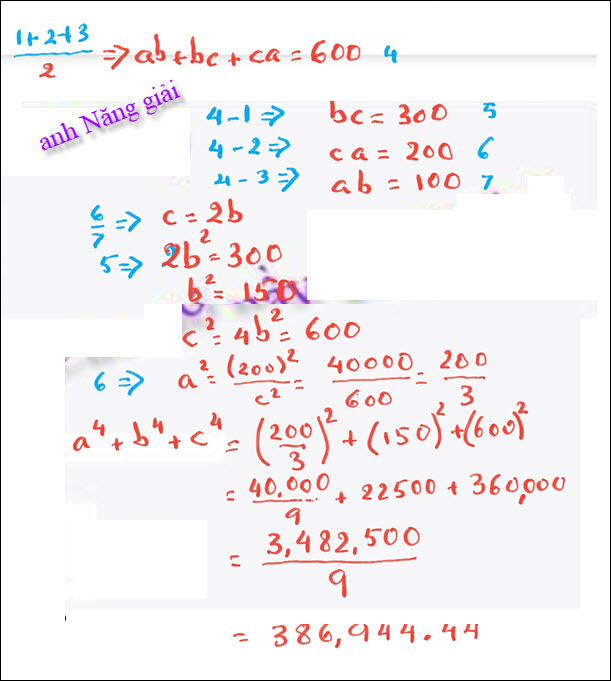 1+2+3/2 => ab + bc + ca = 600 4
anh Năng giải
4-1 => bc = 300 5
4-2 => ca = 200 6
4-3 => ab = 100 7
6/7 => c = 2b
5 => 2b² = 300
b² = 150
c² = 4b² = 600
6 => a² = (200)²/c² = 40000/600 = 200/3
a⁴ + b⁴ + c⁴ = (200/3)² + (150)² + (600)²
= 40,000/9 + 22500 + 360,000
= 3,482,500/9
= 386,944.44